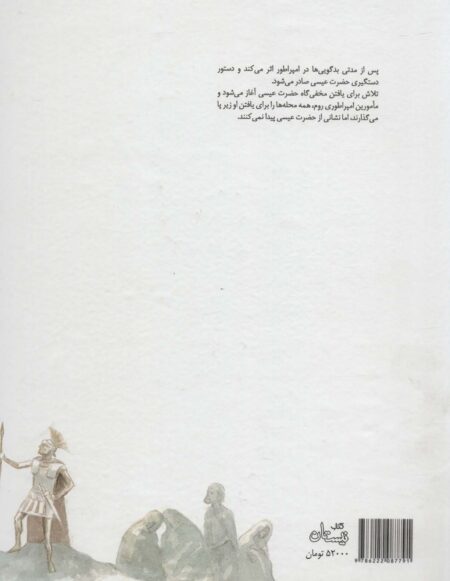 پس از مدتی بدگویی‌ها در امپراطور اثر می‌کند و دستور
دستگیری حضرت عیسی صادر می‌شود.
تلاش برای یافتن مخفی‌گاه حضرت عیسی آغاز می‌شود و
مأمورین امپراطوری روم، همه محله‌ها را برای یافتن او زیر پا
می‌گذارند، اما نشانی از حضرت عیسی پیدا نمی‌کنند.
کتاب
نیستان
۵۲۰۰۰ تومان